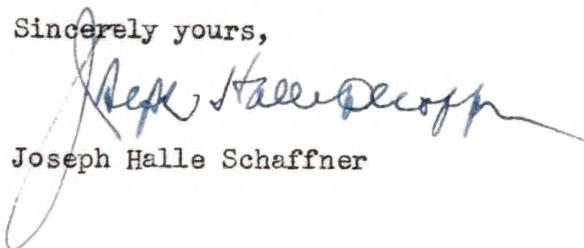 Sincerely yours,
Joseph Halle Schaffner
Joseph Halle Schaffner